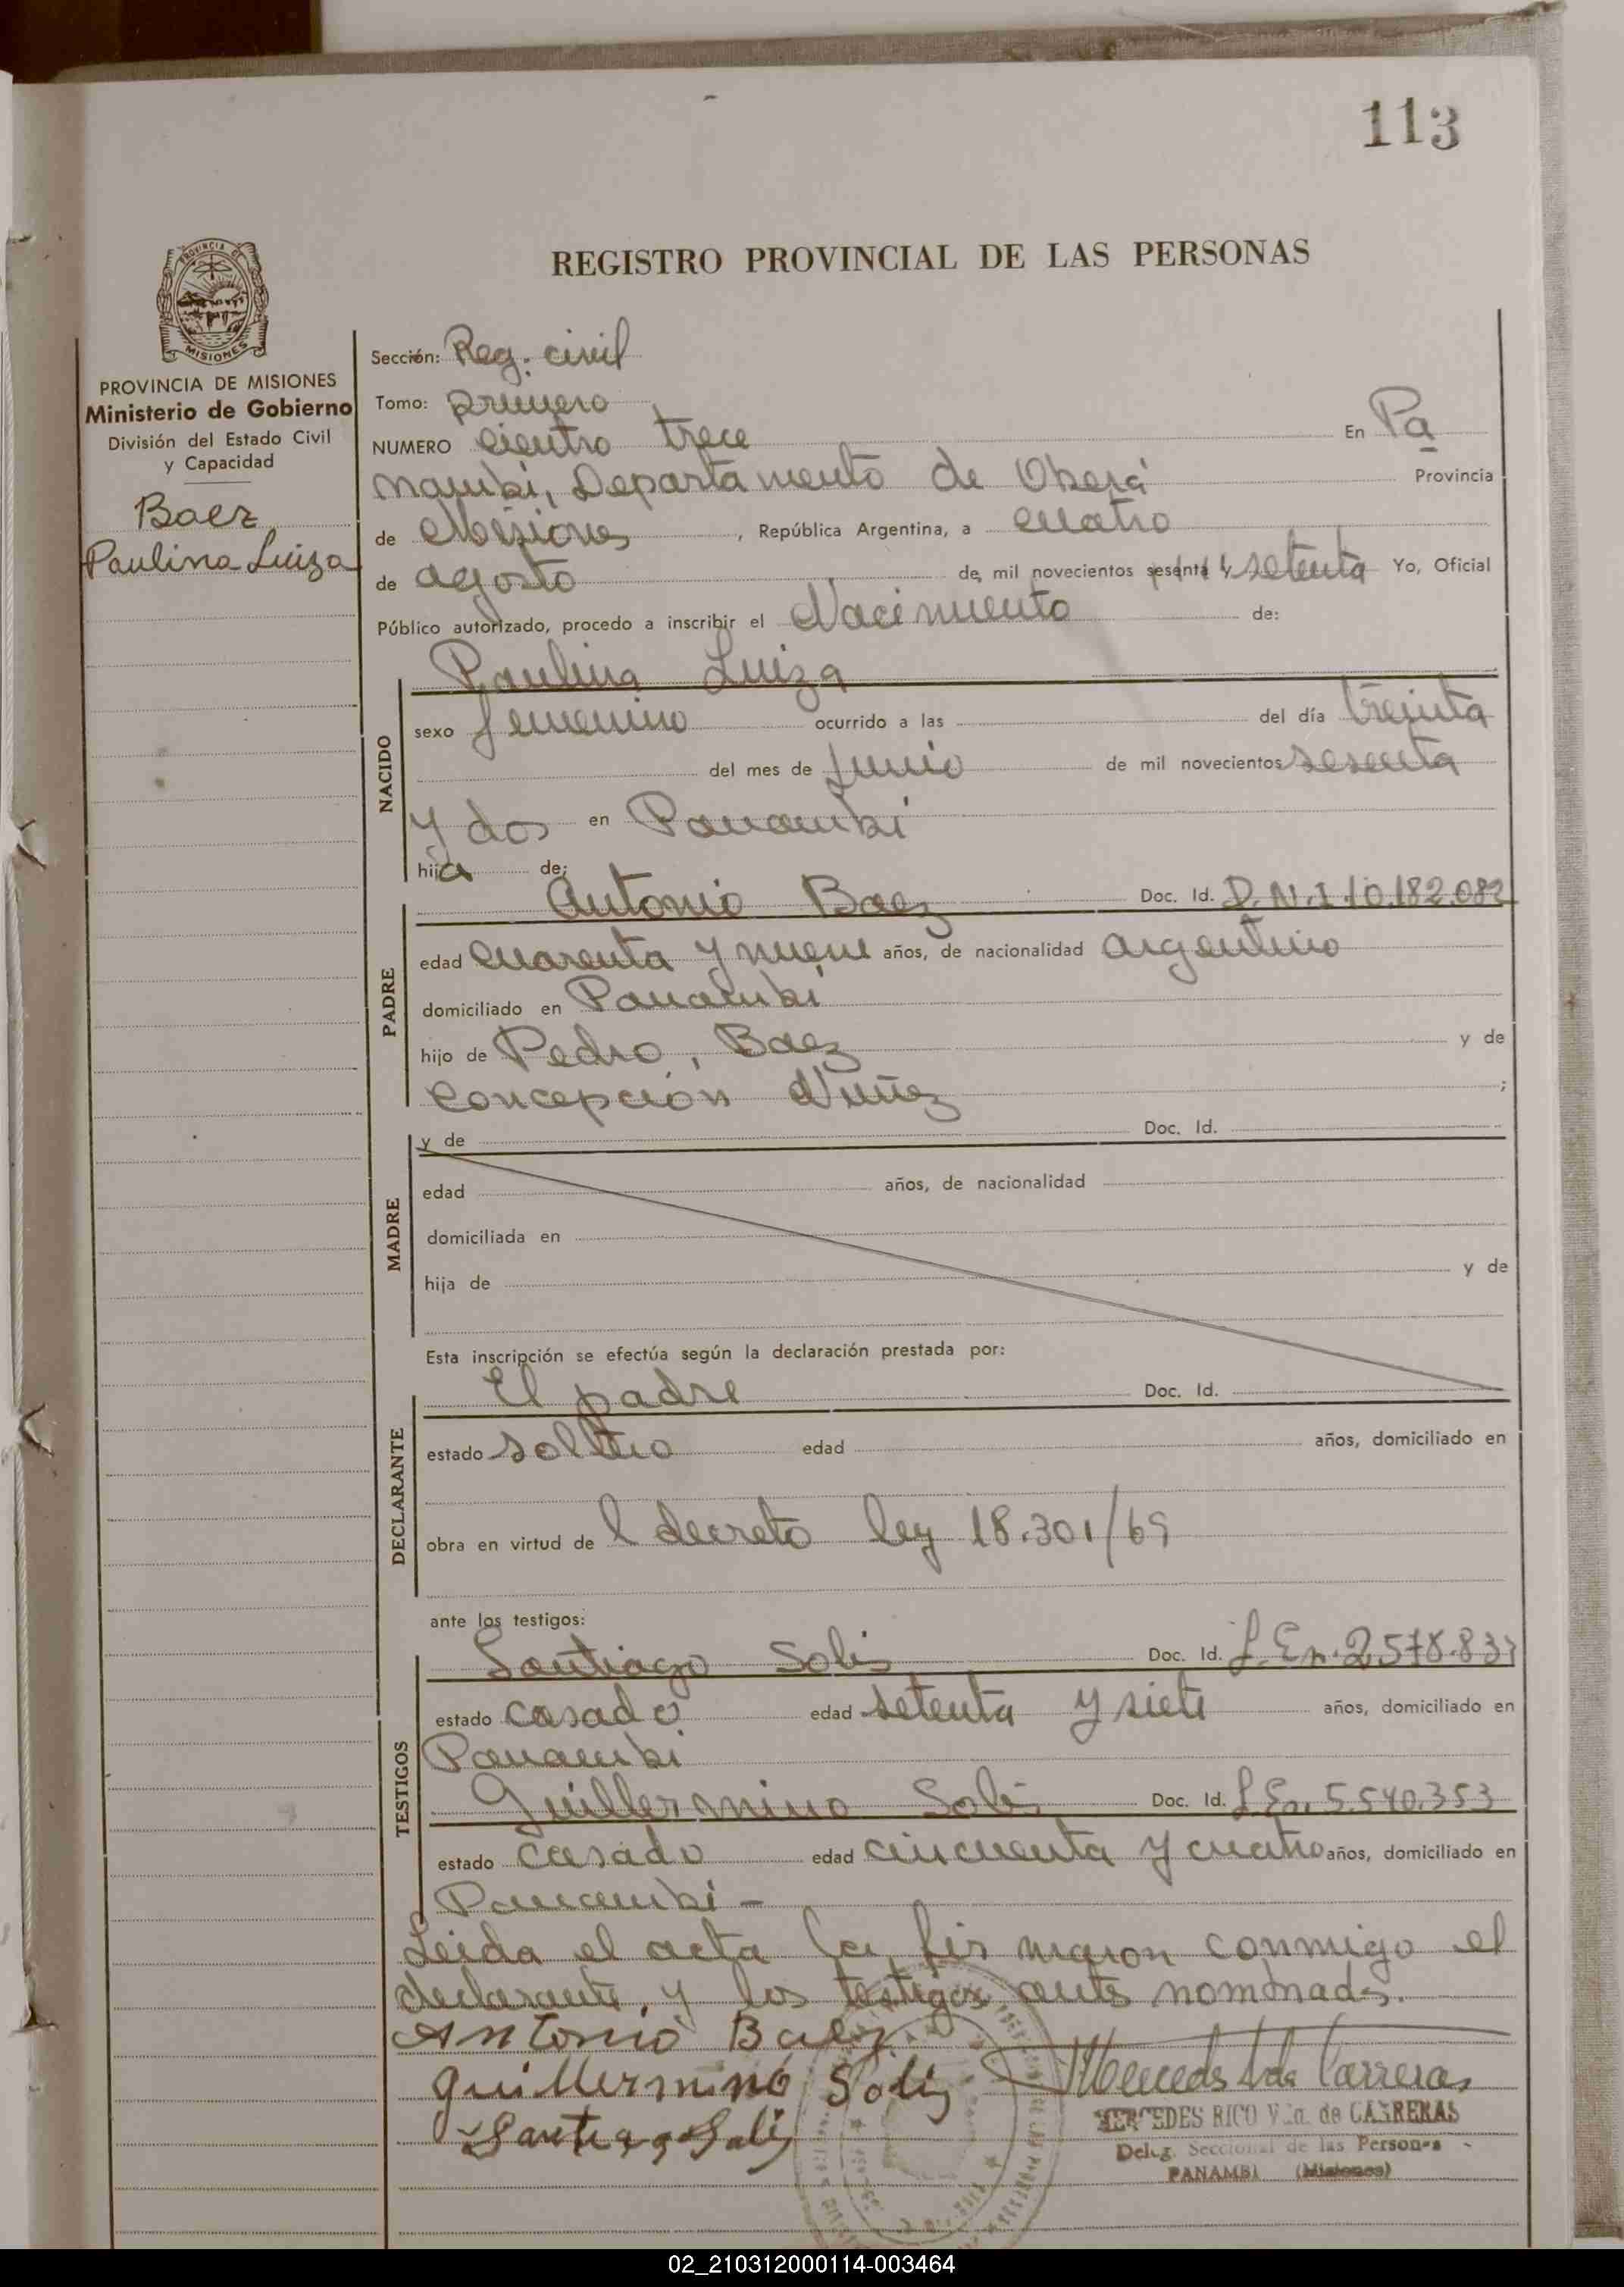 113
REGISTRO PROVINCIAL DE LAS PERSONAS
PROVINCIA
MISIONES
PROVINCIA DE MISIONES
Ministerio de Gobierno
División del Estado Civil
y Capacidad
Baez
Paulina Luiza
Sección: Reg. civil
Tomo: primero
NUMERO ciento trece En Pa
nambi, Departamento de Oberá Provincia
de Misiones, República Argentina, a cuatro
de agosto de mil novecientos sesenta y setenta Yo, Oficial
Público autorizado, procedo a inscribir el Nacimiento de:
NACIDO
Paulina Luiza
sexo femenino ocurrido a las del día treinta
del mes de Junio de mil novecientos sesenta
y dos en Panambí
hija de:
PADRE
Antonio Baez Doc. Id. D.N.I 10.182.082
edad cuarenta y nueve años, de nacionalidad argentino
domiciliado en Panambi
hijo de Pedro, Baez y de
Concepción Nuñez ;
MADRE
y de Doc. Id.
edad años, de nacionalidad
domiciliada en
hija de y de
Esta inscripción se efectúa según la declaración prestada por:
DECLARANTE
El padre Doc. Id.
estado soltero edad años, domiciliado en
obra en virtud de l decreto ley 18.301/69
ante los testigos:
TESTIGOS
Santiago Solis Doc. Id. L.En. 2.578.833
estado casado edad setenta y siete años, domiciliado en
Panambi
Guillermino Solis Doc. Id. L.En. 5.540.353
estado casado edad cincuenta y cuatro años, domiciliado en
Panambi -
Leida el acta la firmaron conmigo el
declarante, y los testigos, antes nominados.
Antonio Baez
Guillermino Solis Mercedes Vda Carreras
Santiago Solis
MERCEDES RICO Vda. de CARRERAS
Deleg. Seccional de las Personas
PANAMBI (Misiones)
02_210312000114-003464